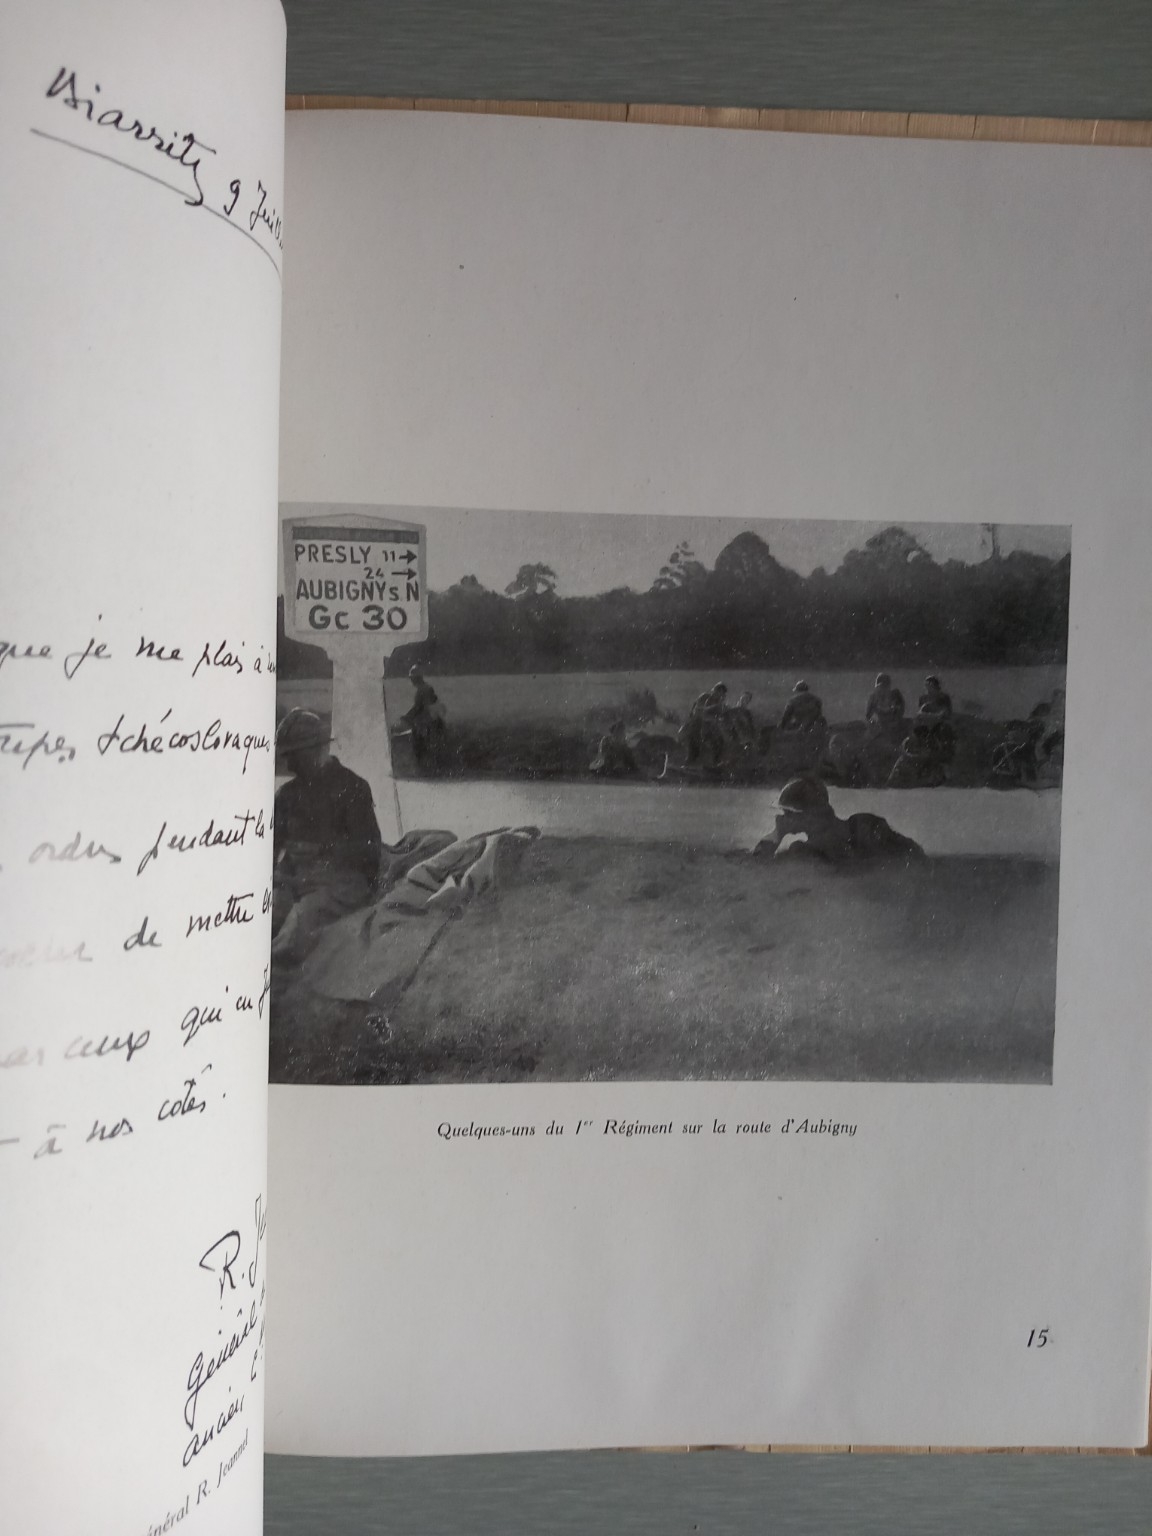 Biarritz 9
que je me plais à
tchécoslovaques
ordres pendant la
de mettre
ceux qui en
à nos côtés.
R.
Général
ancien
R. Jeannel
PRESLY 11→
24→
AUBIGNY S. N
Gc 30
Quelques-uns du 1er Régiment sur la route d'Aubigny
15